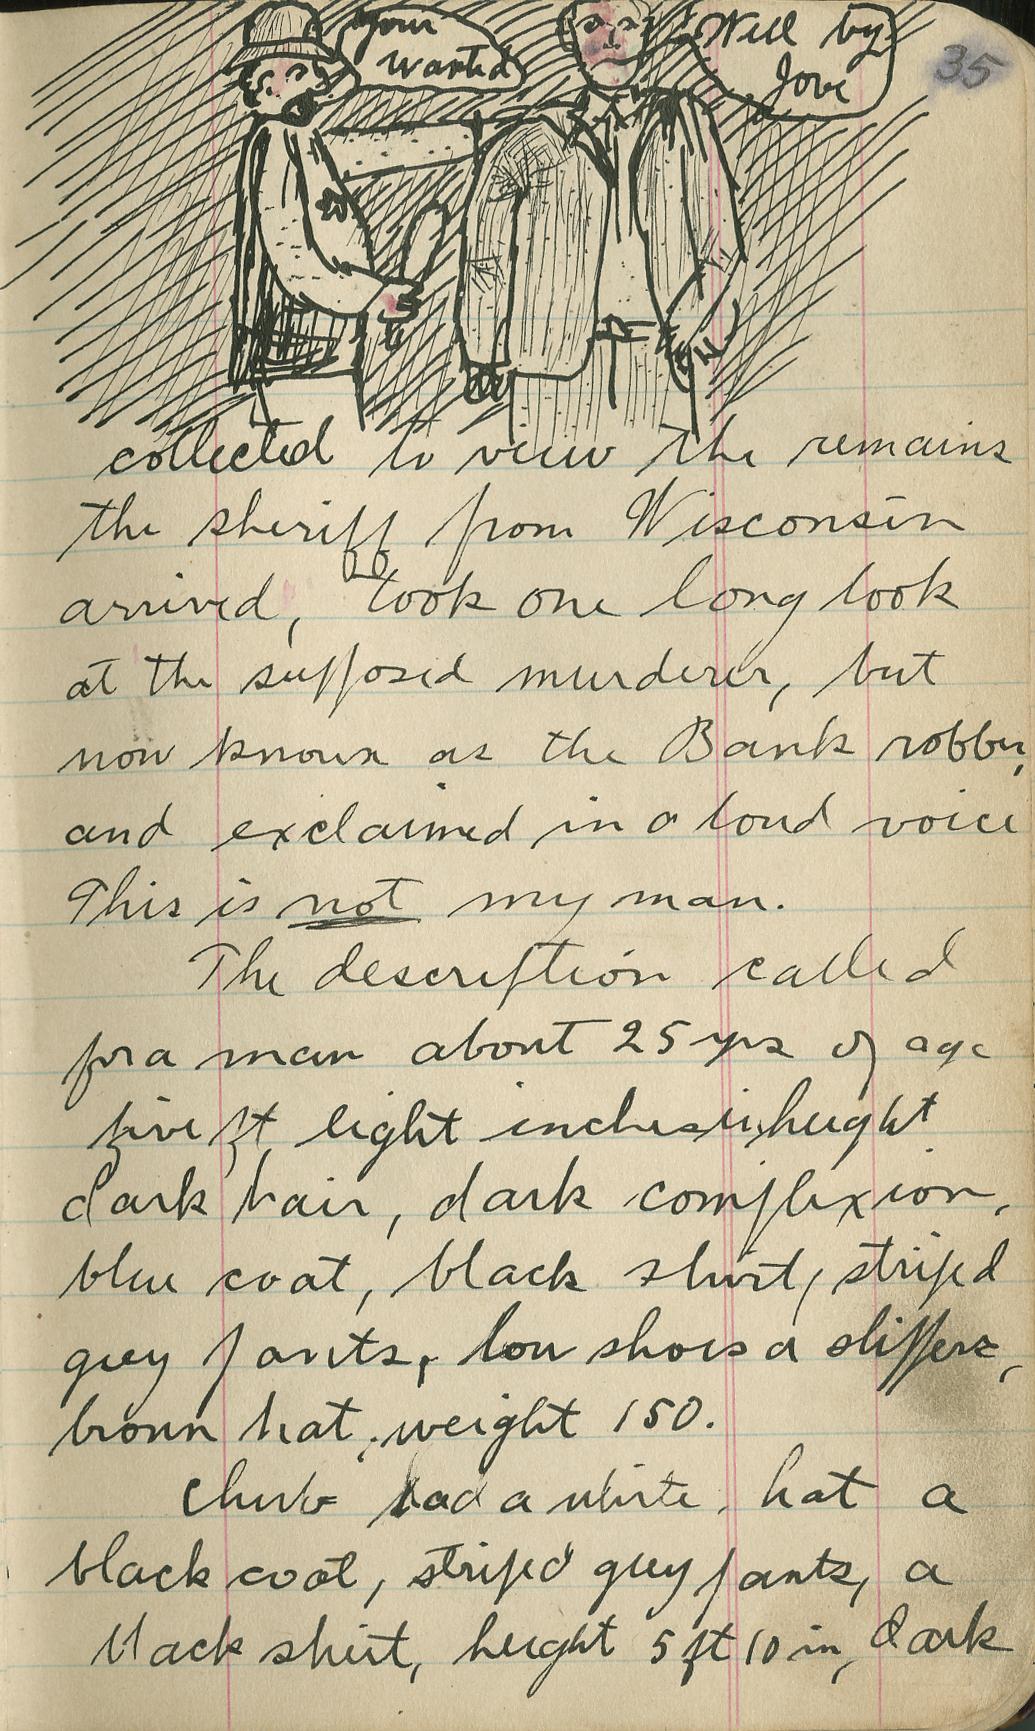 your
wanted
Well by
Jove
35
collected to view the remains
the sheriff from Wisconsin
arrived, took one long look
at the supposed murderer, but
now known as the Bank robber,
and exclaimed in a loud voice
This is not my man.
The description called
for a man about 25 yrs of age
five ft eight inches in height
dark hair, dark complexion,
blue coat, black shirt, striped
grey pants, low shoes a
brown hat, weight 150.
Chub had a white hat a
black coat, striped grey pants, a
black shirt, height 5 ft 10 in, dark